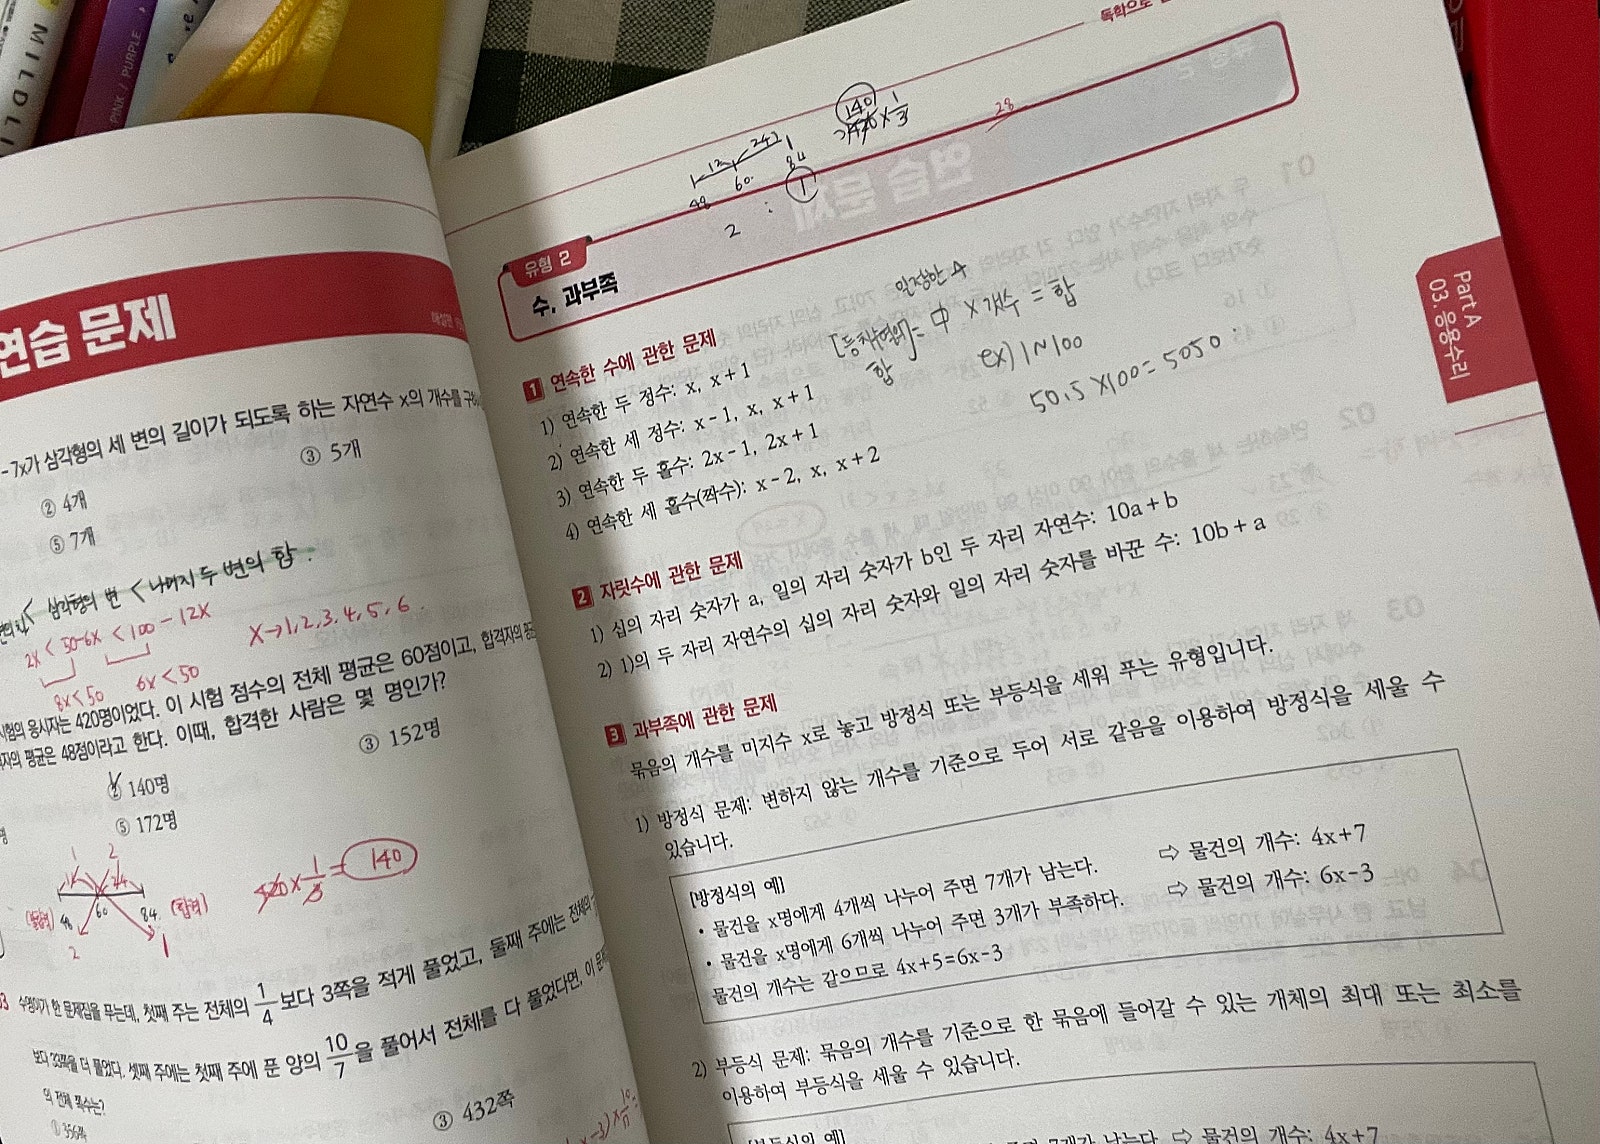 MILDLI
PINK / PURPLE
연습 문제
-7x가 삼각형의 세 변의 길이가 되도록 하는 자연수 x의 개수를
② 4개
③ 5개
⑤ 7개
< 삼각형의 변 < 나머지 두 변의 합
2x < 50-6x < 100-12x
8x<50
6x<50
x→1,2,3,4,5,6
시험의 응시자는 420명이었다. 이 시험 점수의 전체 평균은 60점이고, 합격자의
자의 평균은 48점이라고 한다. 이때, 합격한 사람은 몇 명인가?
② 140명
③ 152명
⑤ 172명
1 2
12 24
48 60 84
2 1
420 × 1/3 = 140
03 수영이가 한 문제집을 푸는데, 첫째 주는 전체의 1/4 보다 3쪽을 적게 풀었고, 둘째 주에는 전체의
보다 33쪽을 더 풀었다. 셋째 주에는 첫째 주에 푼 양의 10/7 을 풀어서 전체를 다 풀었다면, 이
의 전체 쪽수는?
① 356쪽
③ 432쪽
독학으로
140
420 × 1/3
28
12 24
48 60 84
2 : 1
유형 2
수, 과부족
1 연속한 수에 관한 문제
1) 연속한 두 정수: x, x+1
2) 연속한 세 정수: x-1, x, x+1
3) 연속한 두 홀수: 2x-1, 2x+1
4) 연속한 세 홀수(짝수): x-2, x, x+2
일정한 수
합 = 中 × 개수 = 합
ex) 1~100
50.5×100=5050
2 자릿수에 관한 문제
1) 십의 자리 숫자가 a, 일의 자리 숫자가 b인 두 자리 자연수: 10a+b
2) 1)의 두 자리 자연수의 십의 자리 숫자와 일의 자리 숫자를 바꾼 수: 10b+a
3 과부족에 관한 문제
묶음의 개수를 미지수 x로 놓고 방정식 또는 부등식을 세워 푸는 유형입니다.
1) 방정식 문제: 변하지 않는 개수를 기준으로 두어 서로 같음을 이용하여 방정식을 세울 수
있습니다.
[방정식의 예]
• 물건을 x명에게 4개씩 나누어 주면 7개가 남는다. ⇨ 물건의 개수: 4x+7
• 물건을 x명에게 6개씩 나누어 주면 3개가 부족하다. ⇨ 물건의 개수: 6x-3
물건의 개수는 같으므로 4x+5=6x-3
2) 부등식 문제: 묶음의 개수를 기준으로 한 묶음에 들어갈 수 있는 개체의 최대 또는 최소를
이용하여 부등식을 세울 수 있습니다.
[부등식의 예]
주면 7개가 남는다. ⇨ 물건의 개수: 4x+7
Part A
03. 응용수리